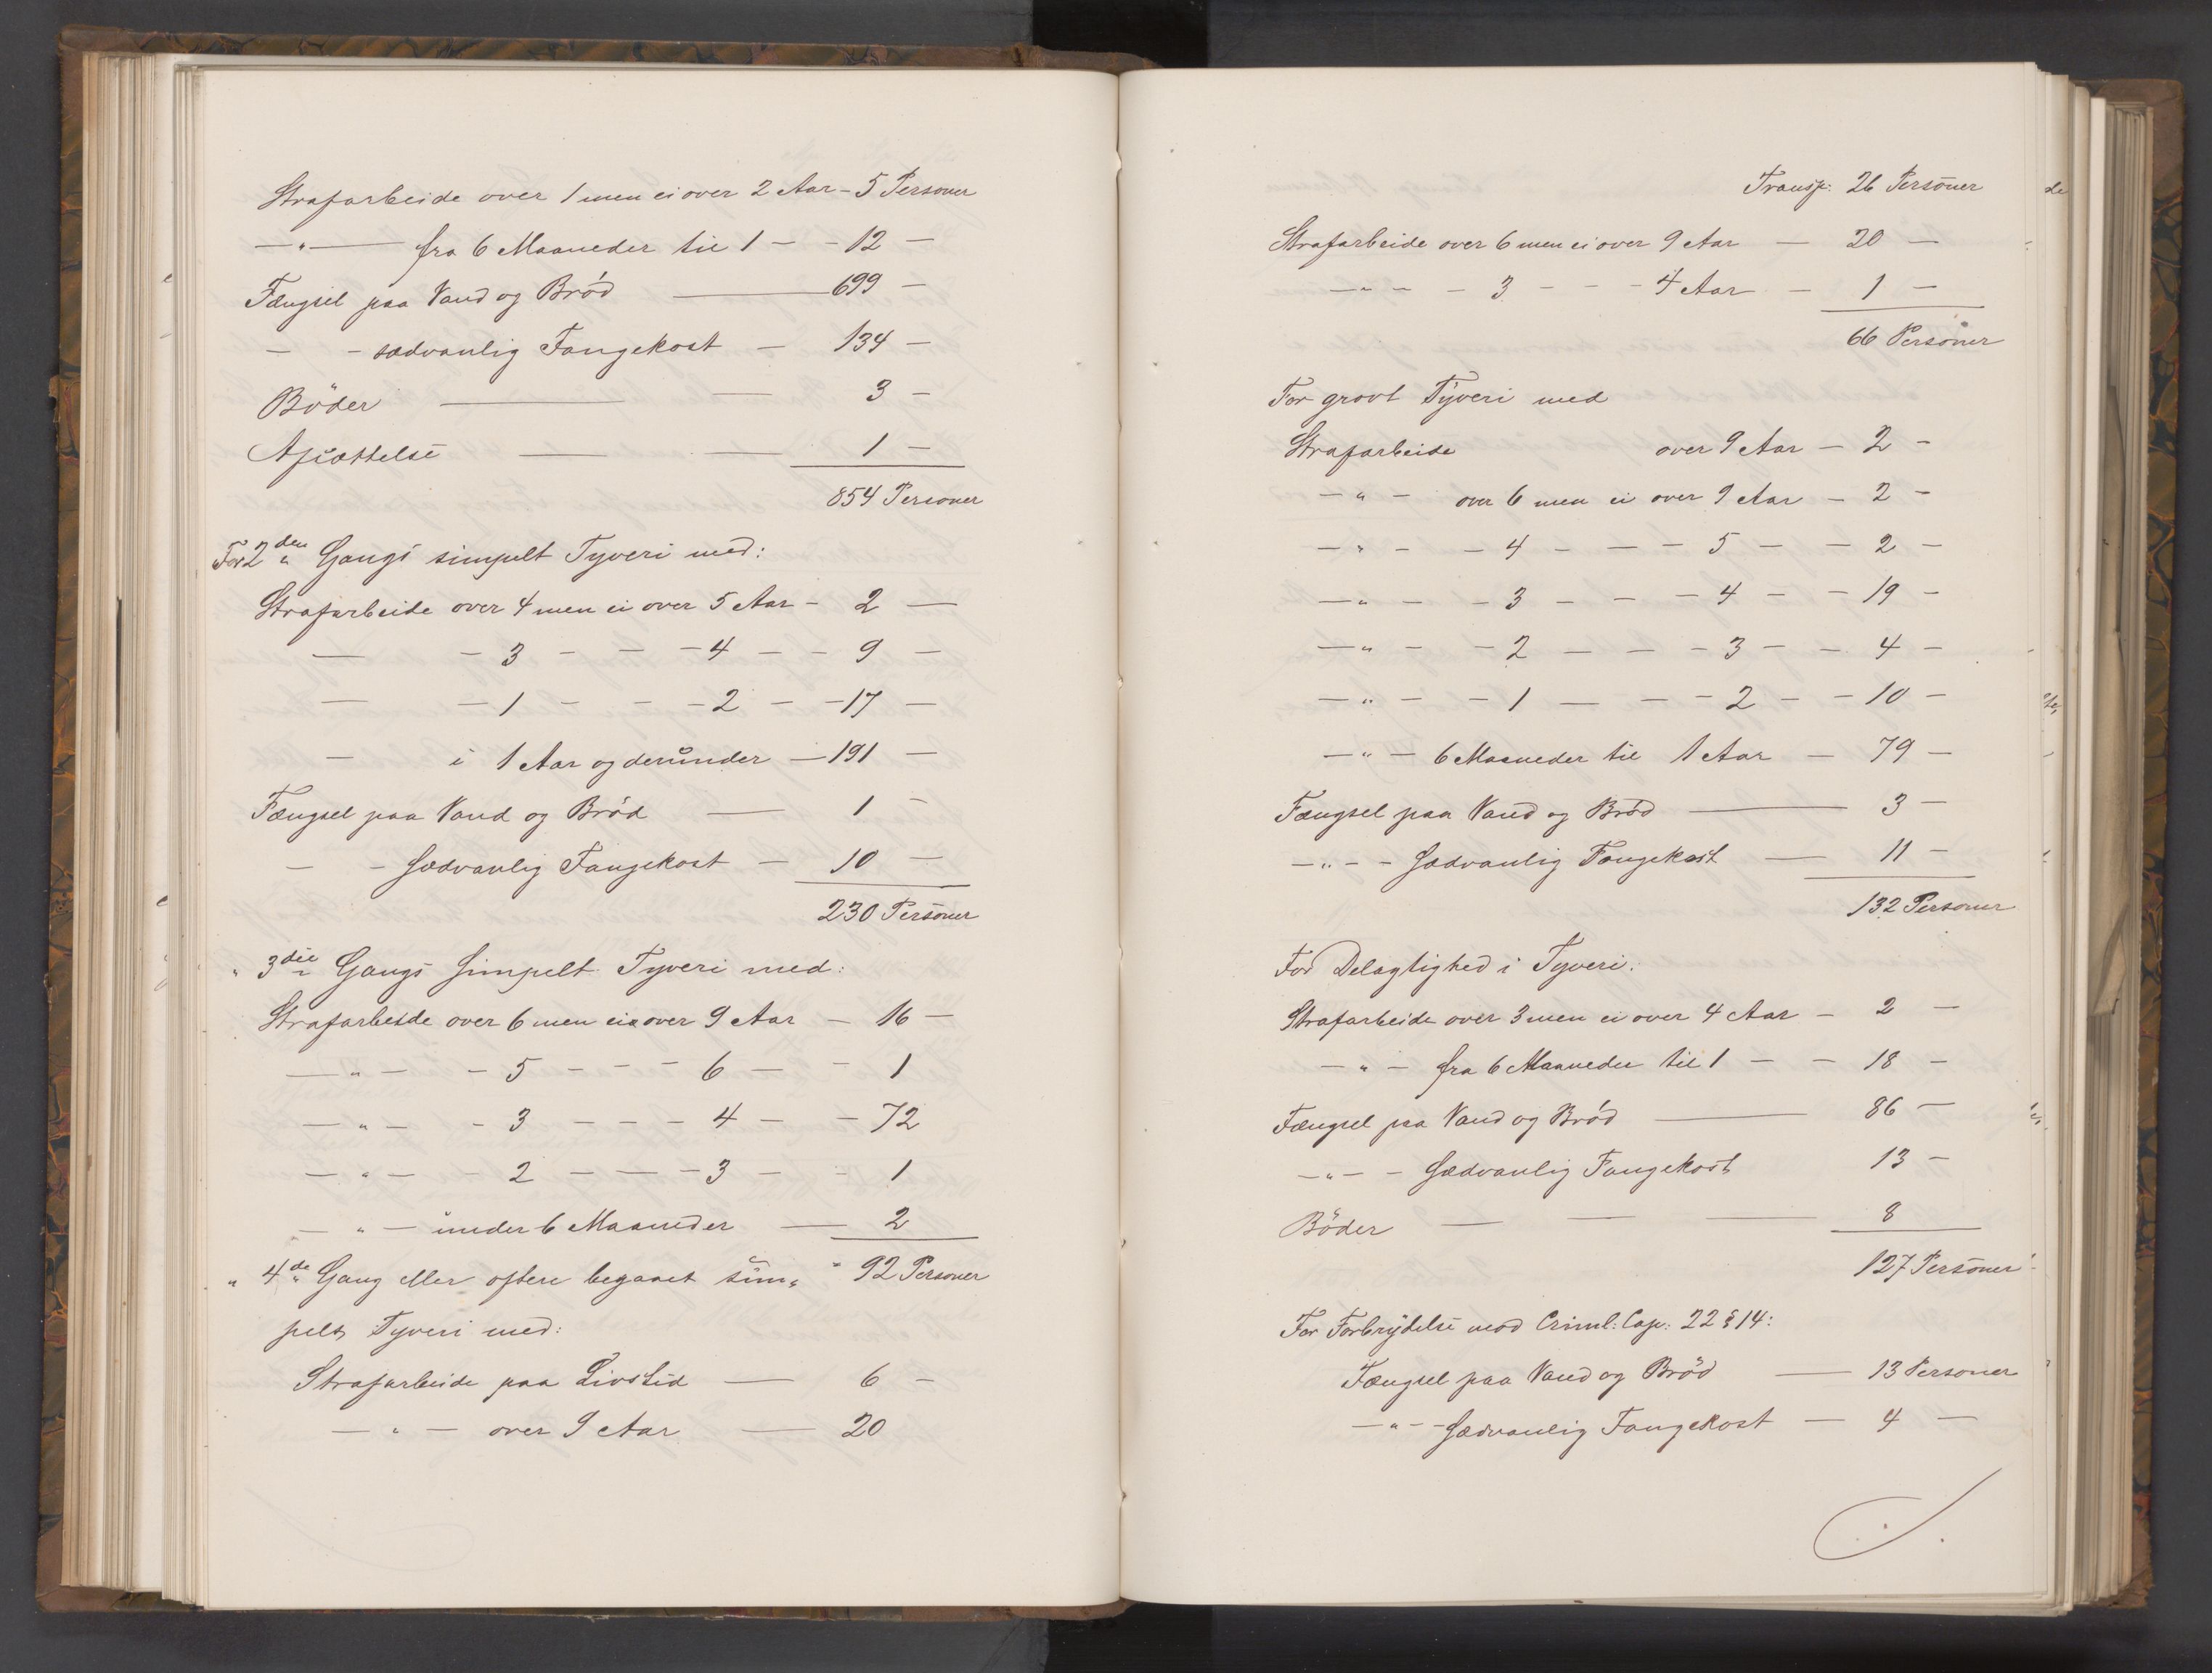 Strafarbeide over 1 men ei over 2 Aar - 5 Personer
— " — fra 6 Maaneder til 1 - - 12 -
Fængsel paa Vand og Brød — 699 -
- - sædvanlig Fangekost - 134 -
Bøder — — 3 -
Afsættelse — — 1 -
854 Personer
For 2den Gangs simpelt Tyveri med:
Strafarbeide over 4 men ei over 5 Aar - 2 —
— - 3 - - - 4 - - 9 -
— - 1 - - - 2 - - 17 -
- i 1 Aar og derunder - 191 -
Fængsel paa Vand og Brød — 1 -
- - Sædvanlig Fangekost - 10 -
230 Personer
" 3die Gangs simpelt Tyveri med:
Strafarbeide over 6 men ei over 9 Aar - 16 -
- " - - 5 - - - 6 - - 1
- " - - 3 - - - 4 - - 72
- " - - 2 - - - 3 - - 1
- " - under 6 Maaneder — 2
" 4de Gang eller oftere begaaet sim- - 92 Personer
pelt Tyveri med:
Strafarbeide paa Livstid — 6 -
- " - over 9 Aar — 20
Transp: 26 Personer
Strafarbeide over 6 men ei over 9 Aar - 20 -
- " - - 3 - - - 4 Aar - 1 -
66 Personer
For grovt Tyveri med
Strafarbeide over 9 Aar - 2 -
- " - over 6 men ei over 9 Aar - 2 -
- " - - 4 - - - 5 - - 2 -
- " - - 3 - - - 4 - - 19 -
- " - - 2 - - - 3 - - 4 -
- " - - 1 - - - 2 - - 10 -
- " - 6 Maaneder til 1 Aar - 79 -
Fængsel paa Vand og Brød — 3 -
- " - - Sædvanlig Fangekost — 11 -
132 Personer
For Delagtighed i Tyveri:
Strafarbeide over 3 men ei over 4 Aar - 2 -
- " - fra 6 Maaneder til 1 - - 18 -
Fængsel paa Vand og Brød — 86 -
- " - - Sædvanlig Fangekost 13 -
Bøder — — — 8
127 Personer
For Forbrydelse mod Criml: Cap: 22 § 14:
Fængsel paa Vand og Brød — 13 Personer
- " - - Sædvanlig Fangekost - 4 —